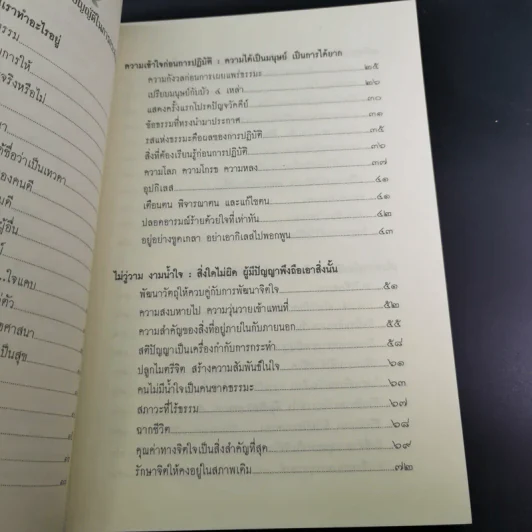 เราทำอะไรอยู่
ธรรม
การให้
จริงหรือไม่
ได้ชื่อว่าเป็นเทวดา
ของคนดี
ผู้อื่น
...ใจแคบ
ศาสนา
เป็นสุข
ความเข้าใจก่อนการปฏิบัติ : ความได้เป็นมนุษย์ เป็นการได้ยาก
ความกังวลก่อนการเผยแพร่ธรรมะ ๒๕
เปรียบมนุษย์กับบัว ๔ เหล่า ๒๖
แสดงครั้งแรกโปรดปัญจวัคคีย์ ๓๐
ข้อธรรมที่ทรงนำมาประกาศ ๓๑
รสแห่งธรรมะคือผลของการปฏิบัติ ๓๕
สิ่งที่ต้องเรียนรู้ก่อนการปฏิบัติ ๓๖
ความโลภ ความโกรธ ความหลง ๓๗
อุปกิเลส ๔๑
เตือนตน พิจารณาตน และแก้ไขตน ๔๑
ปลอดอารมณ์ร้ายด้วยใจที่เท่าทัน ๔๒
อยู่อย่างขูดเกลา อย่าเอากิเลสไปพอกพูน ๔๓
ไม่วู่วาม งามน้ำใจ : สิ่งใดไม่ผิด ผู้มีปัญญาพึงถือเอาสิ่งนั้น
พัฒนาวัตถุให้ควบคู่กับการพัฒนาจิตใจ ๕๑
ความสงบหายไป ความวุ่นวายเข้าแทนที่ ๕๒
ความสำคัญของสิ่งที่อยู่ภายในกับภายนอก ๕๕
สติปัญญาเป็นเครื่องกำกับการกระทำ ๕๘
ปลูกไมตรีจิต สร้างความสัมพันธ์ในใจ ๖๑
คนไม่มีน้ำใจเป็นคนขาดธรรมะ ๖๓
สภาวะที่ไร้ธรรม ๖๗
ฉากชีวิต ๖๘
คุณค่าทางจิตใจเป็นสิ่งสำคัญที่สุด ๖๙
รักษาจิตให้คงอยู่ในสภาพเดิม ๗๒